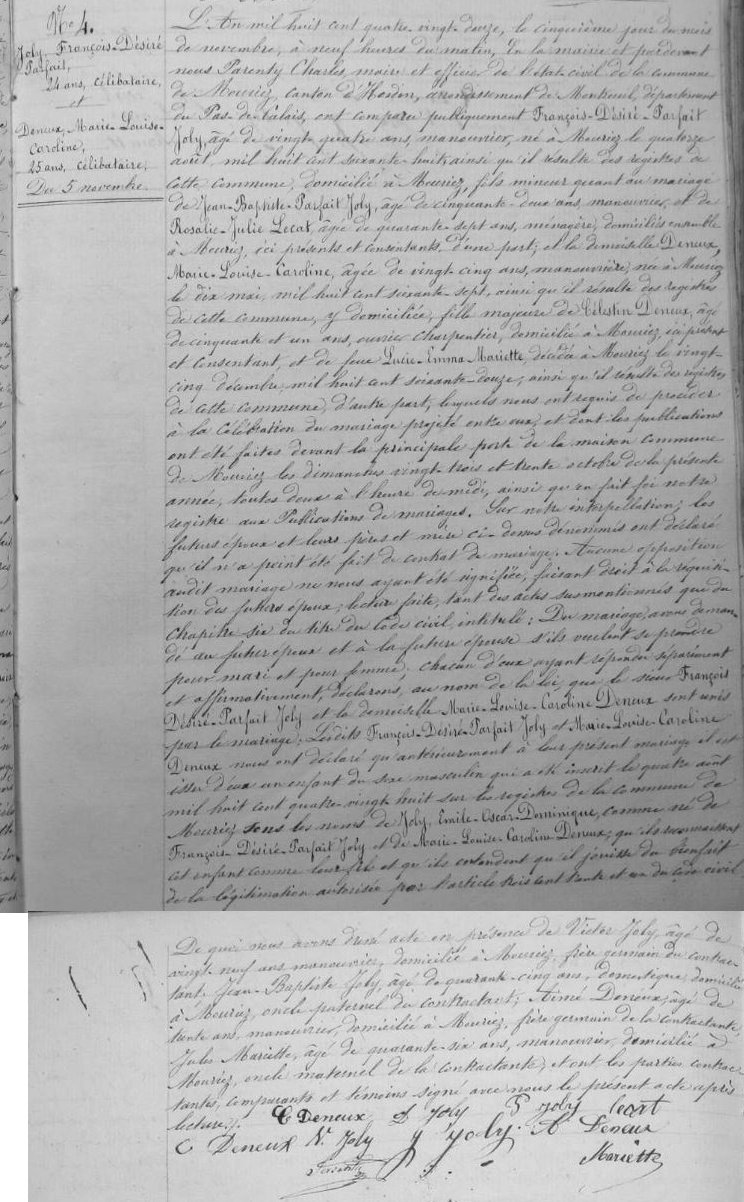 No 4.
Joly, François-Désiré
Parfait,
24 ans, célibataire,
et
Deneux, Marie-Louise-
Caroline,
25 ans, célibataire,
Du 5 novembre
L'An mil huit cent quatre-vingt-douze, le cinquième jour du mois
de novembre, à neuf heures du matin, En la mairie et pardevant
nous Parenty Charles, maire et officier de l'état civil de la commune
de Mouriez, canton d'Hesdin, arrondissement de Montreuil, département
du Pas-de-Calais, ont comparu publiquement François-Désiré-Parfait
Joly, âgé de vingt-quatre ans, manouvrier, né à Mouriez le quatorze
août, mil huit cent soixante-huit, ainsi qu'il résulte des registres de
cette commune, domicilié à Mouriez, fils mineur quant au mariage
de Jean-Baptiste-Parfait Joly, âgé de cinquante-deux ans, manouvrier, et de
Rosalie-Julie Lecat, âgée de quarante-sept ans, ménagère, domiciliés ensemble
à Mouriez, ici présents et consentants, d'une part; et la demoiselle Deneux,
Marie-Louise-Caroline, âgée de vingt-cinq ans, manouvrière, née à Mouriez
le dix mai, mil huit cent soixante-sept, ainsi qu'il résulte des registres
de cette commune, y domiciliée, fille majeure de Célestin Deneux, âgé
de cinquante et un ans, ouvrier charpentier, domicilié à Mouriez, ici présent
et consentant, et de feue Lucie-Emma Mariette, décédée à Mouriez le vingt-
cinq décembre mil huit cent soixante-douze, ainsi qu'il résulte des registres
de cette commune, d'autre part, lesquels nous ont requis de procéder
à la célébration du mariage projeté entre eux, et dont les publications
ont été faites devant la principale porte de la maison commune
de Mouriez les dimanches vingt trois et trente octobre de la présente
année, toutes deux à l'heure de midi, ainsi qu'en fait foi notre
registre aux Publications de mariages. Sur notre interpellation, les
futurs époux et leurs pères et mère ci-dessus dénommés ont déclaré
qu'il n'a point été fait de contrat de mariage. Aucune opposition
audit mariage ne nous ayant été signifiée, faisant droit à la réquisi-
tion des futurs époux, lecture faite, tant des actes susmentionnés que du
chapitre six du titre du Code civil, intitulé: Du mariage, avons deman-
dé au futur époux et à la future épouse s'ils veulent se prendre
pour mari et pour femme; chacun d'eux ayant répondu séparément
et affirmativement, déclarons, au nom de la loi, que le sieur François
Désiré-Parfait Joly et la demoiselle Marie-Louise-Caroline Deneux sont unis
par le mariage. Lesdits François-Désiré-Parfait Joly et Marie-Louise-Caroline
Deneux nous ont déclaré qu'antérieurement à leur présent mariage il est
issu d'eux un enfant du sexe masculin qui a été inscrit le quatre août
mil huit cent quatre-vingt huit sur les registres de la commune de
Mouriez sous les noms de Joly, Emile-Oscar-Dominique, comme né de
François-Désiré-Parfait Joly et de Marie-Louise-Caroline Deneux; qu'ils reconnaissent
cet enfant comme leur fils et qu'ils entendent qu'il jouisse du bienfait
de la légitimation autorisée par l'article trois cent trente et un du code civil
De quoi nous avons dressé acte en présence de Victor Joly, âgé de
vingt-neuf ans, manouvrier, domicilié à Mouriez, frère germain du contrac-
tant, Jean-Baptiste Joly, âgé de quarante-cinq ans, domestique, domicilié
à Mouriez, oncle paternel du contractant; Aimé Deneux, âgé de
trente ans, manouvrier, domicilié à Mouriez, frère germain de la contractante,
Jules Mariette, âgé de quarante-six ans, manouvrier, domicilié à
Mouriez, oncle maternel de la contractante, et ont les parties contrac-
tantes, comparants et témoins signé avec nous le présent acte après
lecture./.
C Deneux D Joly P Joly lecat
C Deneux V. Joly J Joly. A Deneux
Parenty Mariette